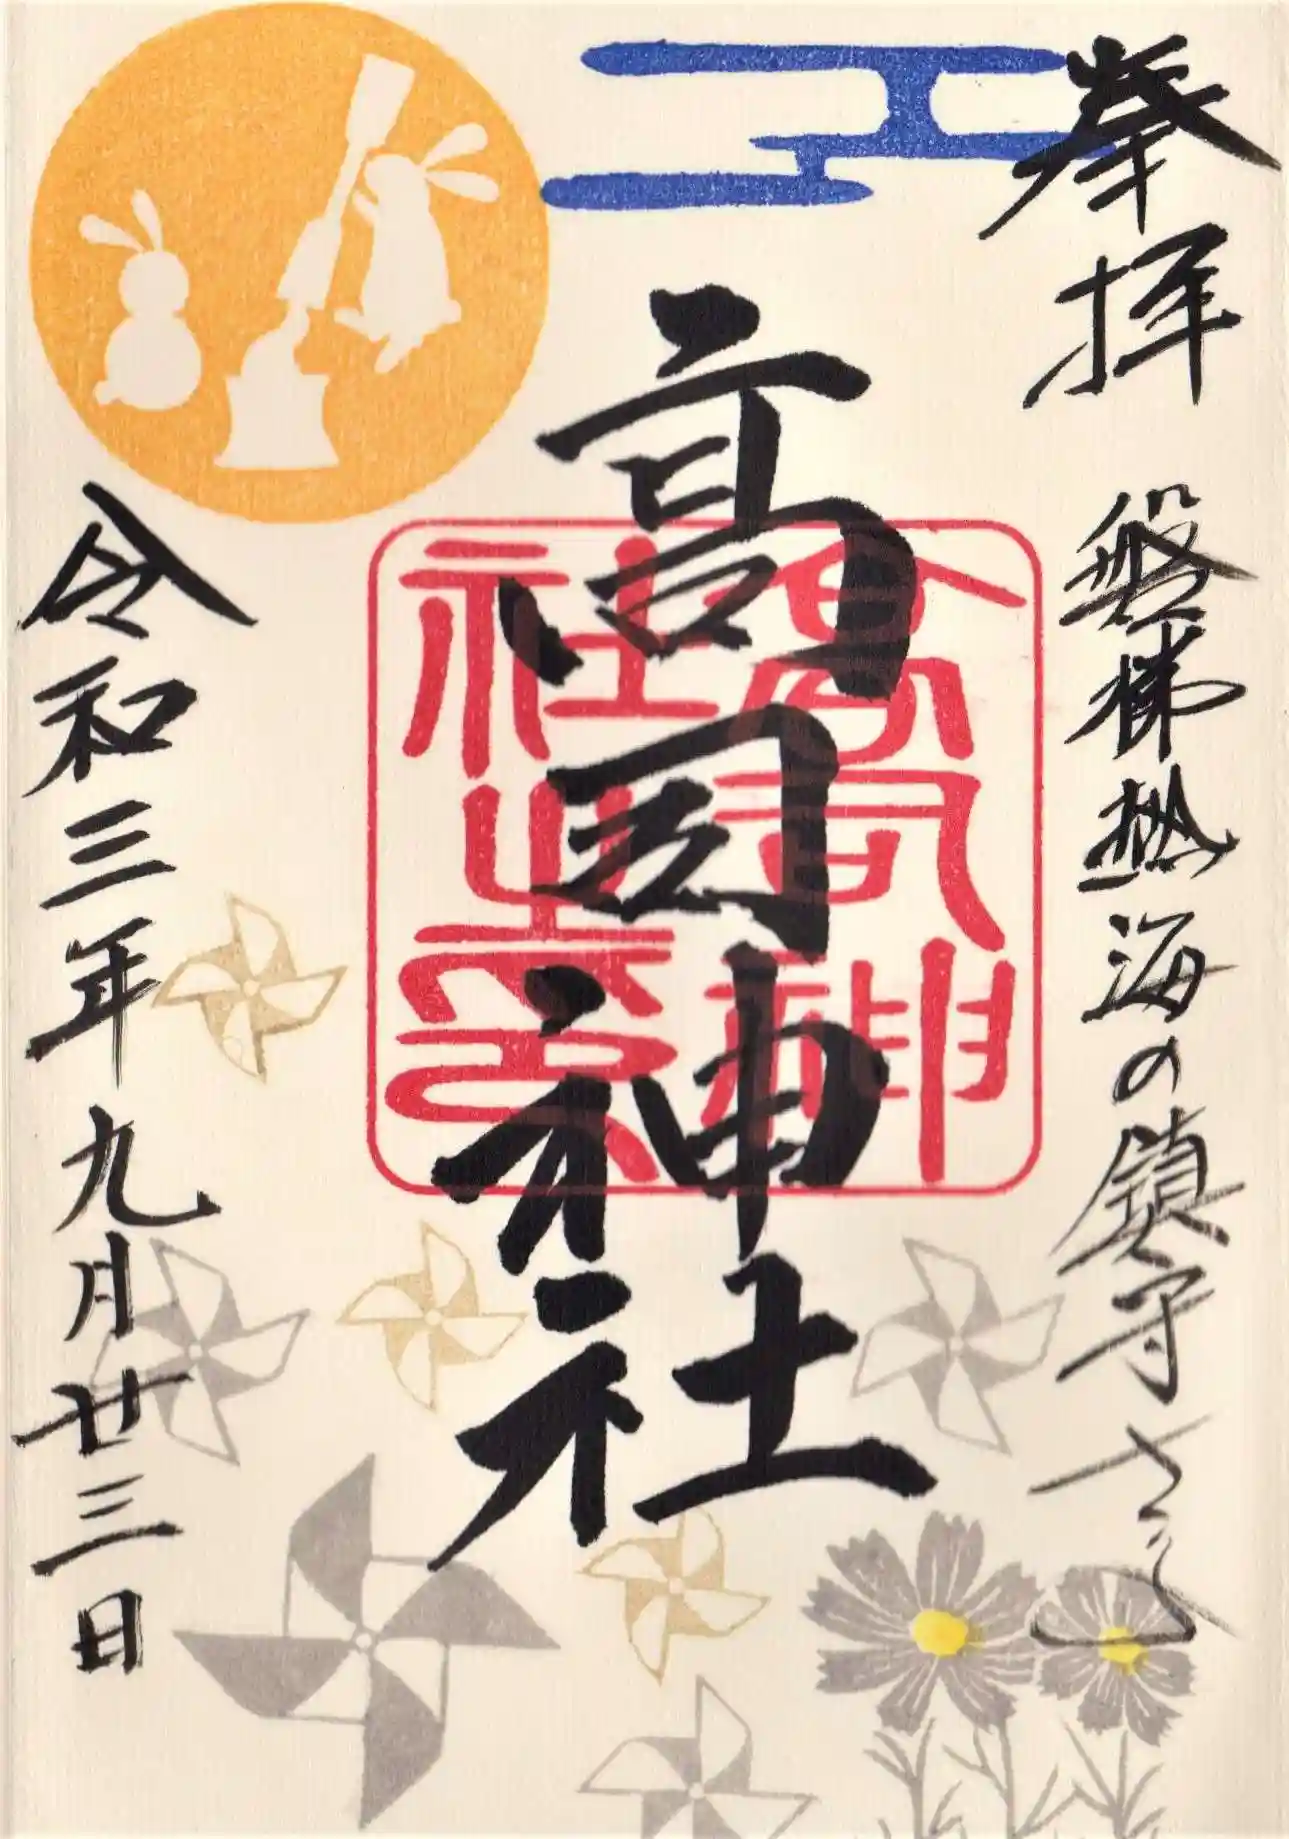 奉拝
磐梯熱海の鎮守さま
高司神社
高司神
社之印
令和三年九月廿三日